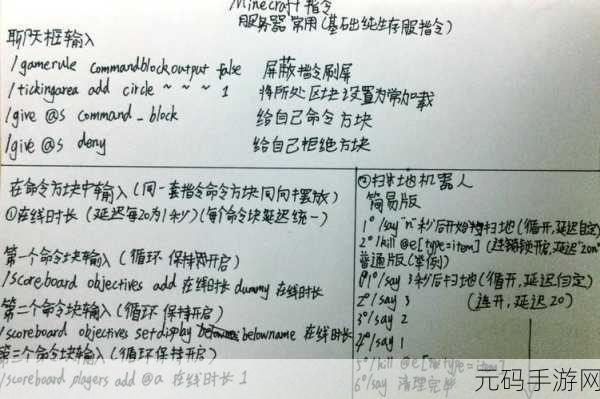 Minecraft 指令
服务器 常用(基础纯生存服指令)
聊天框输入
/gamerule commandblockoutput false 屏蔽指令刷屏
/tickingarea add circle ~ ~ ~ 1 将所处区块设置为常加载
/give @s command_block 给自己命令方块
/give @s deny 给自己拒绝方块
在命令方块中输入(同一套指令命令方块同向摆放)
①在线时长(延迟每20为1秒)(每个命令块延迟统一)
第一个命令块输入(循环 保持开启)
/scoreboard objectives add 在线时长 dummy 在线时长
第二个命令块输入(循环 保持开启)
/scoreboard objectives setdisplay belowname 在线时长
第三个命令块输入(循环保持开启)
/scoreboard players add @a 在线时长 1
②扫地机器人
简易版
1°/say "n"秒后开始扫地(循开,延迟自定)
2°/kill @e[type=item] (连锁开,延迟"20n")
普通版(举例)
1°/say 3秒后扫地(循开,延迟自定)
2°/say 3 (连开,延迟20)
3°/say 2
4°/say 1
5°/kill @e[type=item]
6°/say 清理完毕
元码手游网